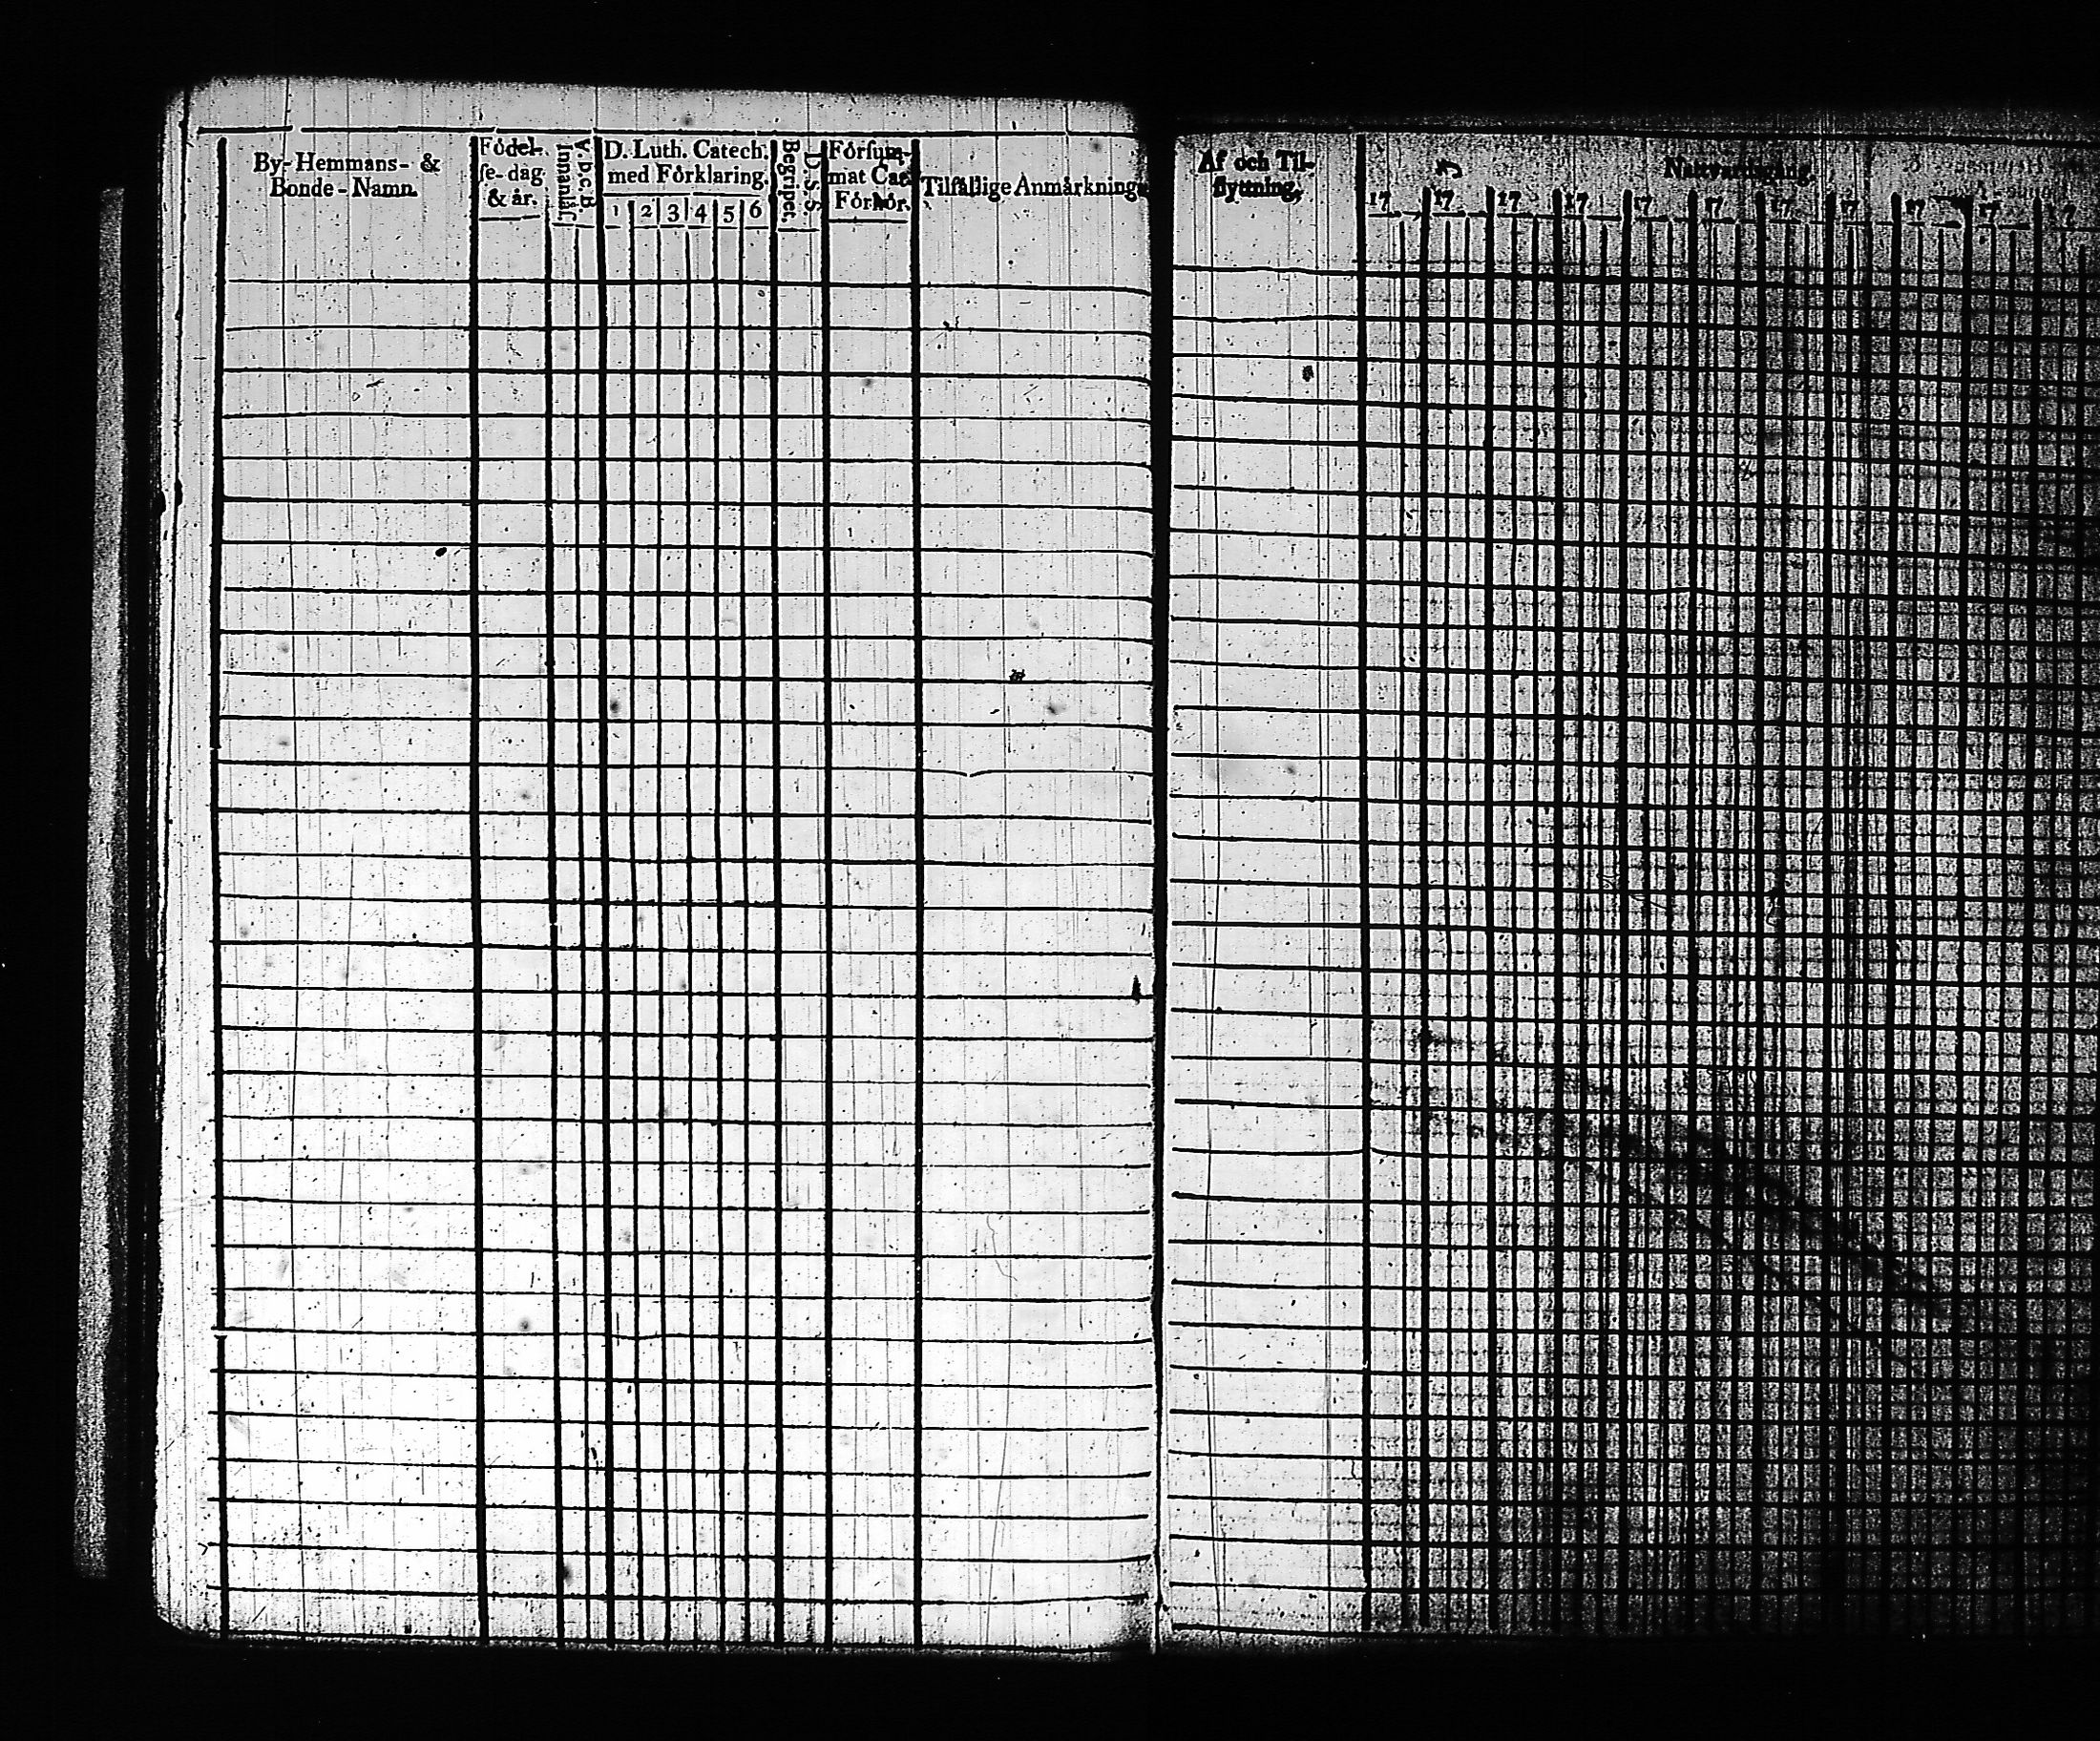 By-Hemmans- &
Bonde-Namn.
Födel-
se-dag
& år.
V. b. c. B.
innantil.
D. Luth. Catech.
med Förklaring.
1 2 3 4 5 6
D. S. S.
Begripet.
Försum-
mat Cat.
Förhör.
Tilfällige Anmärkning
Af och Til-
flyttning.
Nattvardsgång.
17 17 17 17 17 17 17 17 17 17 17